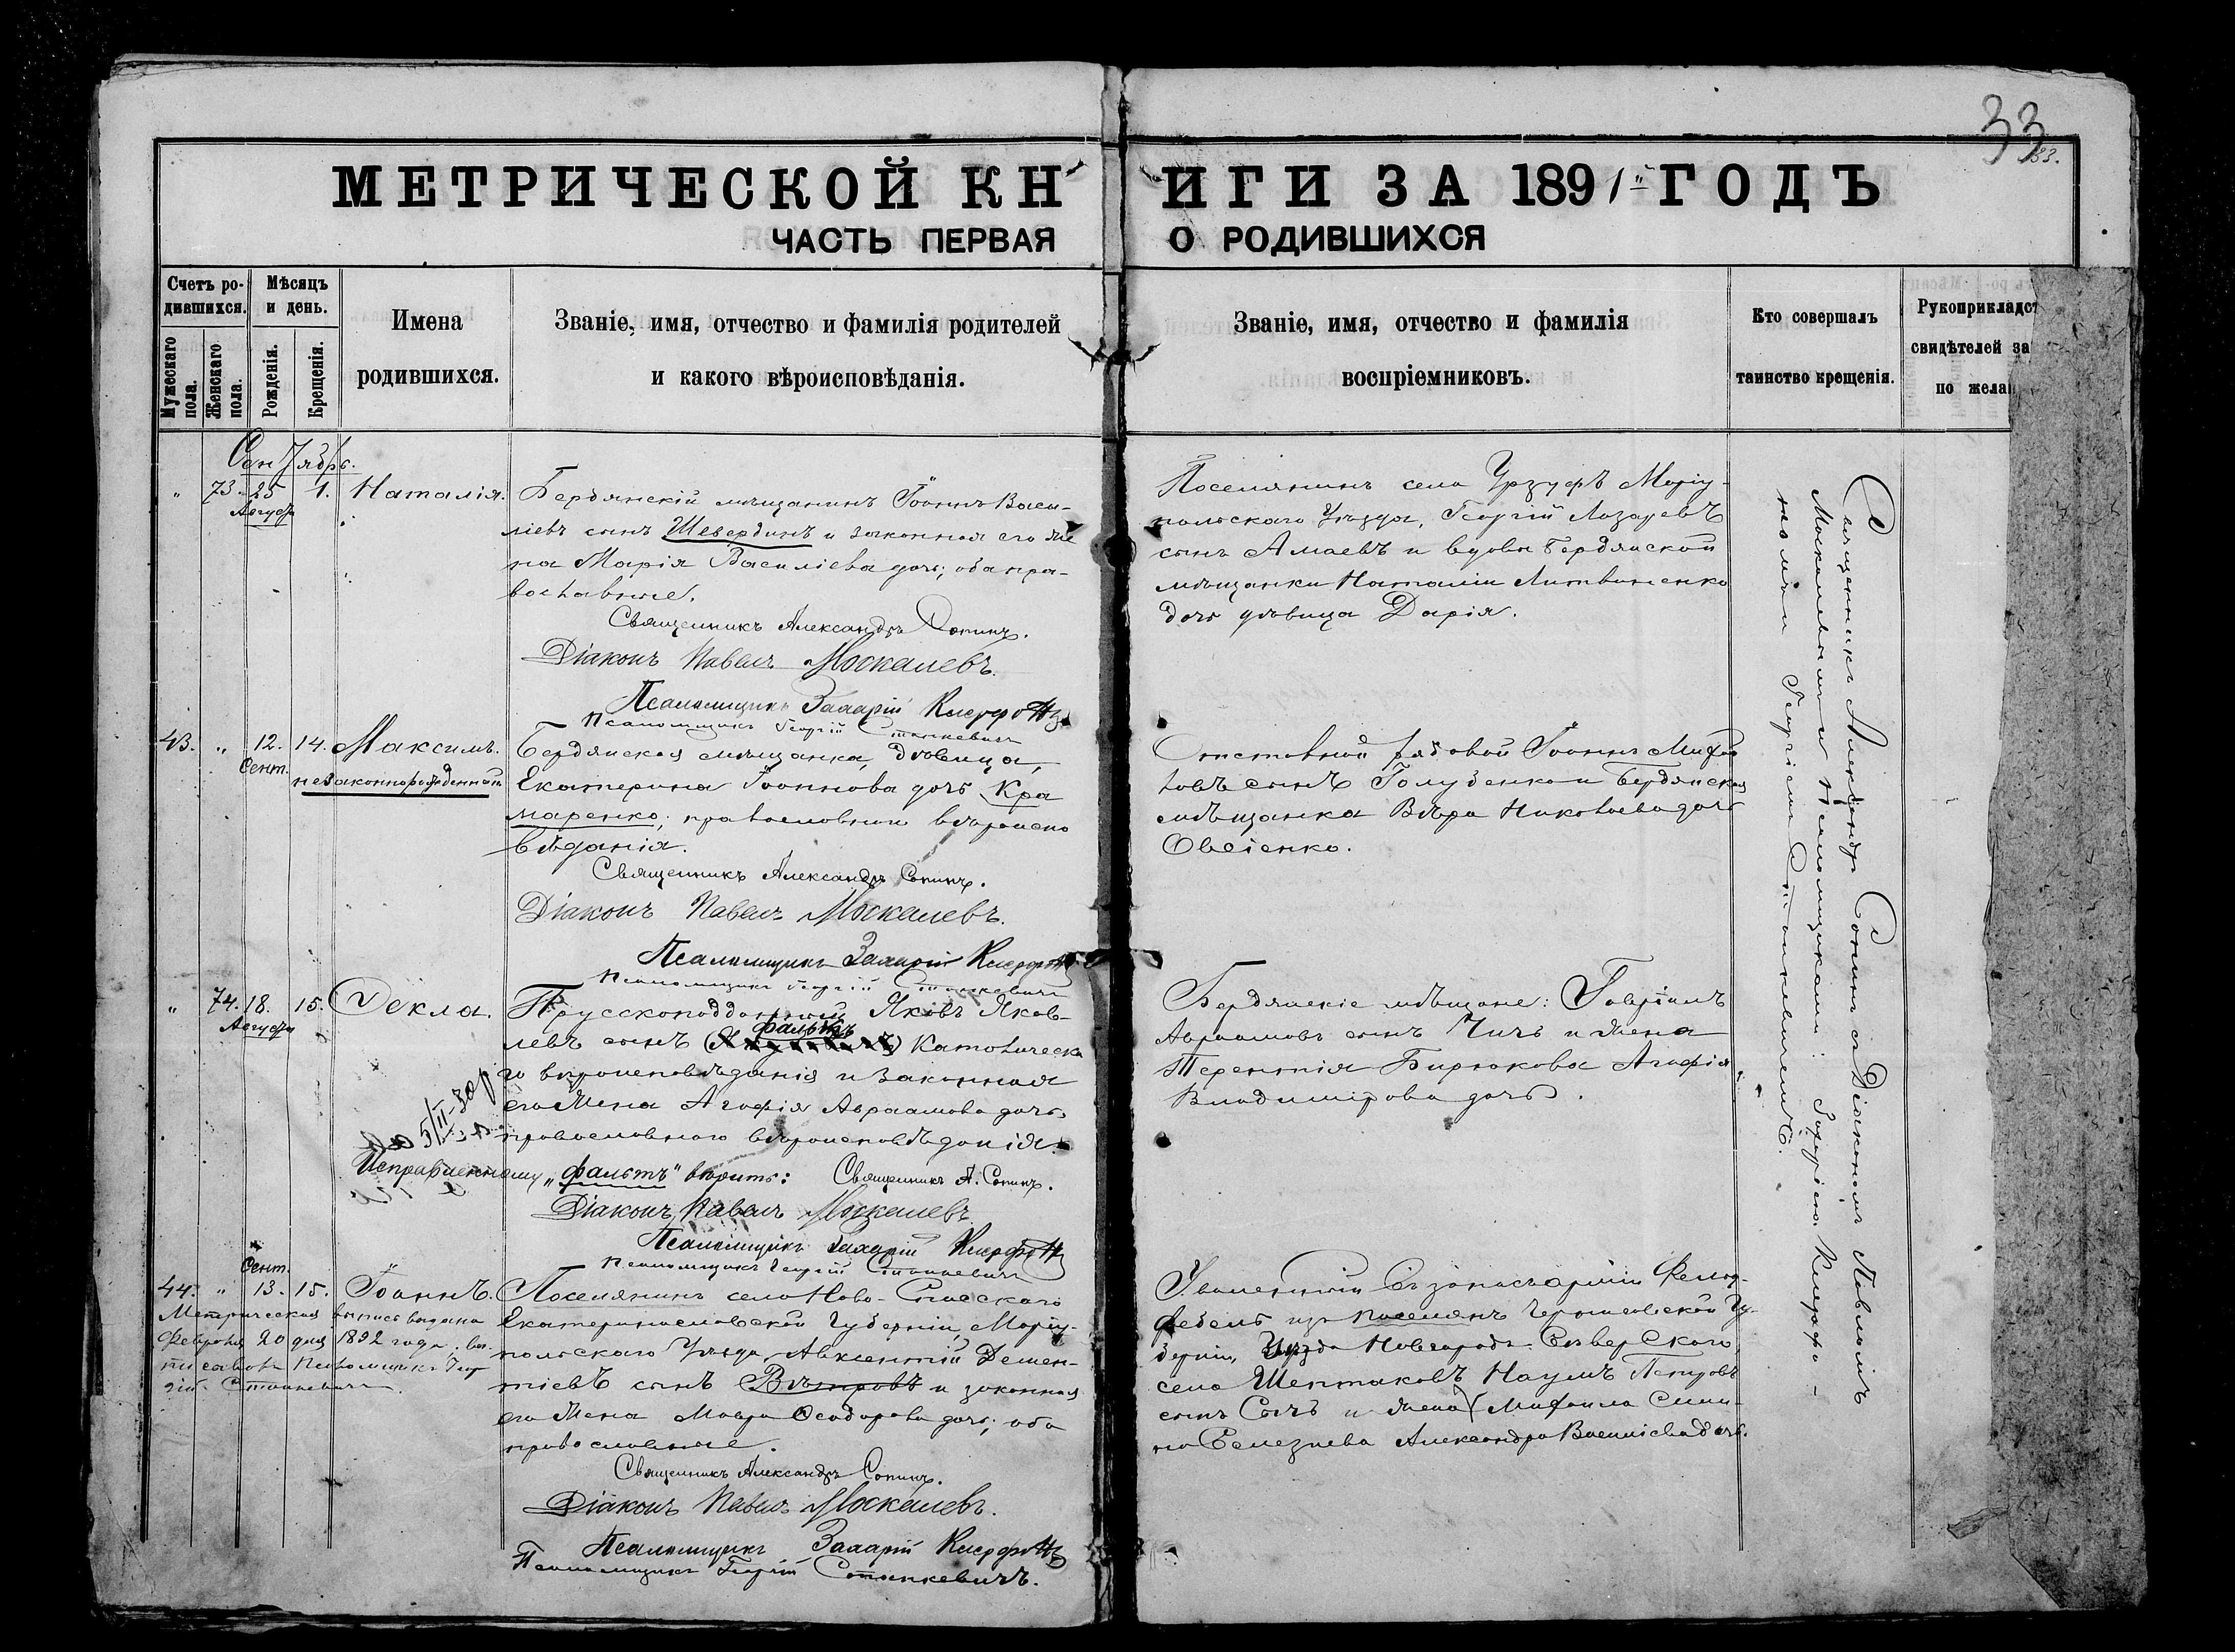 33
83.
МЕТРИЧЕСКОЙ КНИГИ ЗА 1891 ГОДЪ
ЧАСТЬ ПЕРВАЯ О РОДИВШИХСЯ
Счетъ ро-
дившихся.
Мужескаго пола.
Женскаго пола.
Мѣсяцъ
и день.
Рожденія.
Крещенія.
Имена
родившихся.
Званіе, имя, отчество и фамилія родителей
и какого вѣроисповѣданія.
Званіе, имя, отчество и фамилія
воспріемниковъ.
Кто совершалъ
таинство крещенія.
Рукоприкладст
свидѣтелей за
по жела
Сентябрь.
" 73. 25 1. Наталія.
Августа
Бердянскій мѣщанинъ Іоаннъ Васи-
ліевъ сынъ Шевердинъ и законная его же
на Марія Василіева дочь; оба пра-
вославные.
Священникъ Александръ Сопинъ.
Діаконъ Павелъ Москалевъ.
Псаломщикъ Захарій
Псаломщикъ Георгій Станкевичъ
Поселянинъ села Урзуфъ Маріу-
польскаго уѣзда, Георгій Лазаревъ
сынъ Амаевъ и вдовы Бердянской
мѣщанки Наталіи Литвиненко
дочь дѣвица Дарія.
43. " 12. 14. Максимъ.
Сент.
незаконнорожденный
Бердянская мѣщанка, дѣвица,
Екатерина Іоаннова дочь Кра
маренко; православнаго вѣроиспо
вѣданія.
Священникъ Александръ Сопинъ.
Діаконъ Павелъ Москалевъ.
Псаломщикъ Захарій
Псаломщикъ Георгій Станкевичъ
Отставной рядовой Іоаннъ Михаи
ловъ сынъ Голубенко и Бердянская
мѣщанка Вѣра Николаева дочь
Овсіенко.
" 74. 18. 15. Ѳекла.
Августа
Прусскоподданный Яковъ Яков-
фальтъ
левъ сынъ Католическа
го вѣроисповѣданія и законная
его жена Агафія Авраамова дочь
православнаго вѣроисповѣданія.
Исправленному „фальтъ" вѣрить: Священникъ А. Сопинъ.
Діаконъ Павелъ Москалевъ
Псаломщикъ Захарій
Псаломщикъ Георгій Станкевичъ
Бердянскіе мѣщане: Гавріилъ
Авраамовъ сынъ Чичъ и жена
Терентія Бирюкова Агафія
Владимірова дочь.
Сент.
44. " 13. 15. Іоаннъ.
Метрическая выпись выдана
Февраля 20 дня 1892 года.
Псаломщикъ Геор
гій Станкевичъ.
Поселянинъ села Ново-Спасскаго
Екатеринославской Губерніи, Маріу-
польскаго уѣзда, Авксентій Демен-
тіевъ сынъ Вѣтровъ и законная
его жена Мавра Ѳеодорова дочь; оба
православные.
Священникъ Александръ Сопинъ.
Діаконъ Павелъ Москалевъ.
Псаломщикъ Захарій
Псаломщикъ Георгій Станкевичъ.
Уволенный въ запасъ арміи Фельд-
фебель изъ поселянъ Черниговской Гу-
берніи, Уѣзда Новгородъ-Сѣверскаго,
села Шептаковъ Наумъ Петровъ
сынъ Сычъ и жена Михаила
Селезнева Александра Василіева дочь.
Священникъ Александръ Сопинъ съ Діакономъ Павломъ
Москалевымъ и Псаломщиками: Захаріемъ
и Георгіемъ Станкевичемъ.